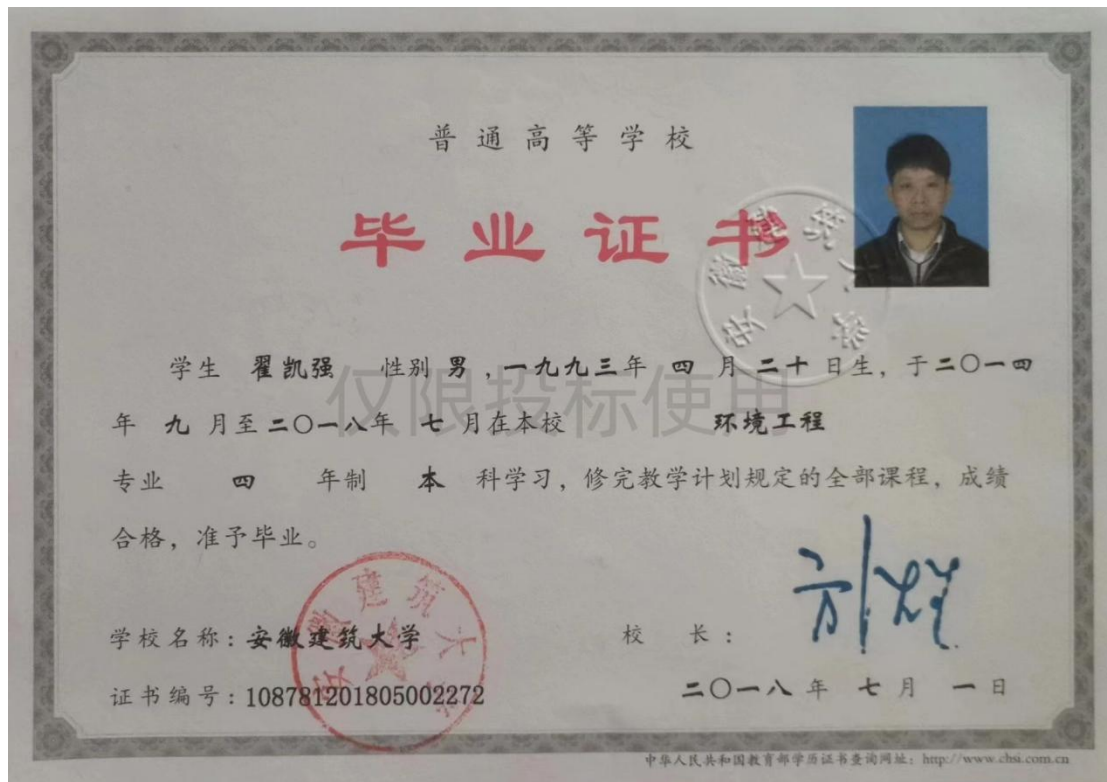 普通高等学校
毕业证书
学生 翟凯强 性别 男，一九九三年 四 月 二十 日生，于二〇一四
年 九 月至二〇一八年 七 月在本校 环境工程
专业 四 年制 本 科学习，修完教学计划规定的全部课程，成绩
合格，准予毕业。
仅限投标使用
安徽建筑大学
学校名称：安徽建筑大学
校 长：
证书编号：108781201805002272
二〇一八 年 七 月 一 日
安徽建筑大学
中华人民共和国教育部学历证书查询网址：http://www.chsi.com.cn